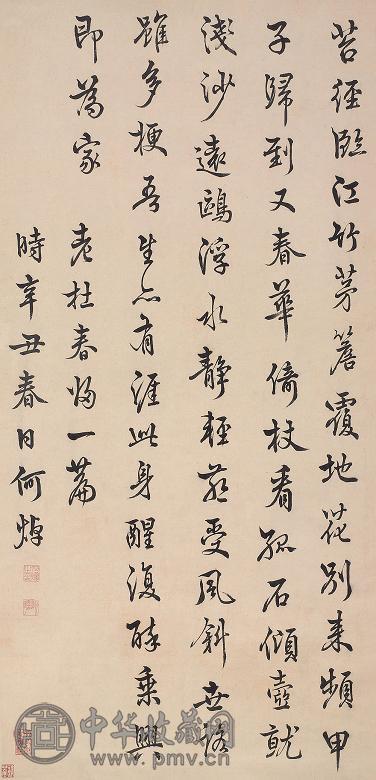 苔徑臨江竹茅簷覆地花別來頻甲
子歸到又春華倚杖看孤石傾壺就
淺沙遠鷗浮水靜輕燕受風斜世路
雖多梗吾生亦有涯此身醒復醉乘興
即為家 老杜春歸一篇
時辛丑春日何焯
中华收藏网
www.pmv.cn